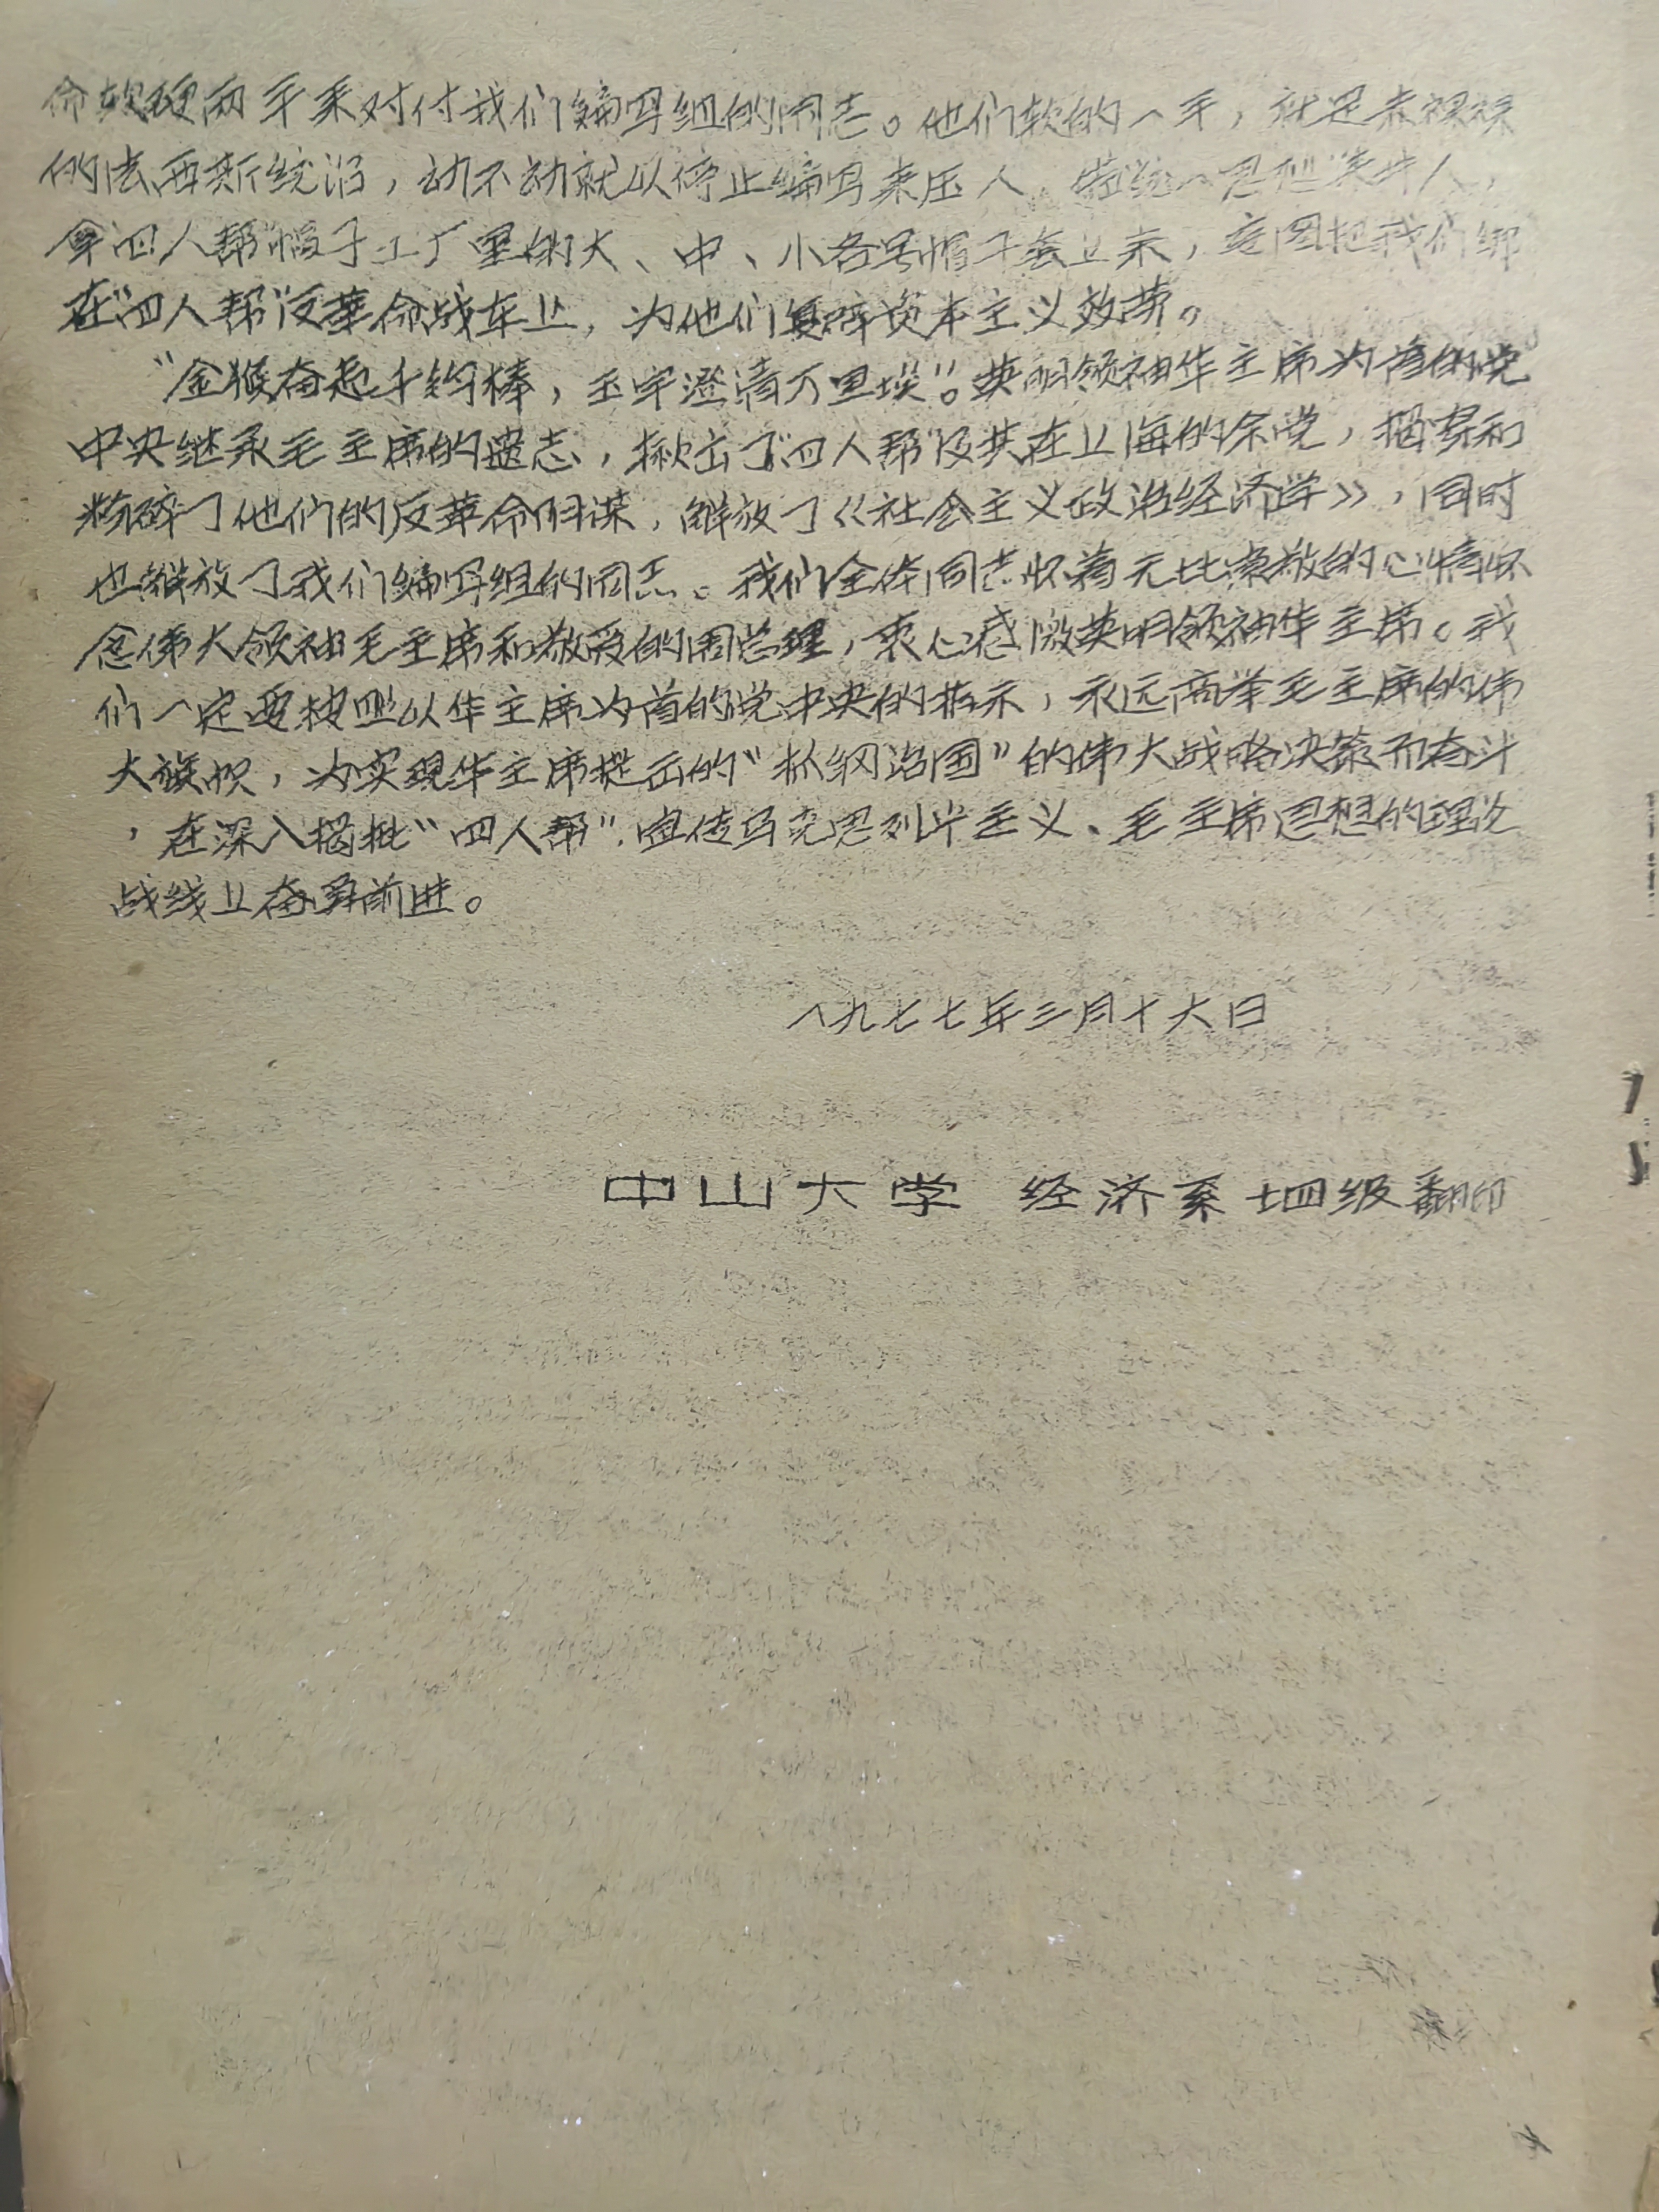 命软硬两手来对付我们编写组的同志。他们软的一手，就是赤裸裸
的法西斯统治，动不动就以停止编写来压人，
拿四人帮帽子工厂里的大、中、小各号帽子套上来，意图把我们绑
在“四人帮”反革命战车上，为他们复辟资本主义效劳。
“金猴奋起千钧棒，玉宇澄清万里埃”。英明领袖华主席为首的党
中央继承毛主席的遗志，揪出了“四人帮”及其在上海的余党，揭穿和
粉碎了他们的反革命阴谋，解放了《社会主义政治经济学》，同时
也解放了我们编写组的同志。我们全体同志怀着无比崇敬的心情怀
念伟大领袖毛主席和敬爱的周总理，衷心感激英明领袖华主席。我
们一定要按照以华主席为首的党中央的指示，永远高举毛主席的伟
大旗帜，为实现华主席提出的“抓纲治国”的伟大战略决策而奋斗
，在深入揭批“四人帮”，宣传马克思列宁主义、毛主席思想的理论
战线上奋勇前进。
一九七七年三月十六日
中山大学 经济系七四级翻印